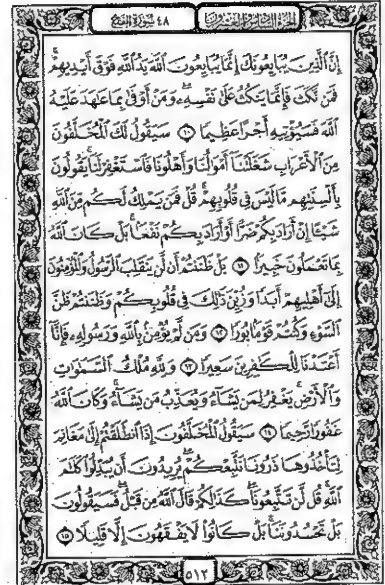 الجزء السادس والعشرون ٤٨ سُورَةُ الفَتْح
إِنَّ ٱلَّذِينَ يُبَايِعُونَكَ إِنَّمَا يُبَايِعُونَ ٱللَّهَ يَدُ ٱللَّهِ فَوْقَ أَيْدِيهِمْ
فَمَن نَّكَثَ فَإِنَّمَا يَنكُثُ عَلَىٰ نَفْسِهِۦ وَمَنْ أَوْفَىٰ بِمَا عَٰهَدَ عَلَيْهُ
ٱللَّهَ فَسَيُؤْتِيهِ أَجْرًا عَظِيمًا ١٠ سَيَقُولُ لَكَ ٱلْمُخَلَّفُونَ
مِنَ ٱلْأَعْرَابِ شَغَلَتْنَآ أَمْوَٰلُنَا وَأَهْلُونَا فَٱسْتَغْفِرْ لَنَا يَقُولُونَ
بِأَلْسِنَتِهِم مَّا لَيْسَ فِى قُلُوبِهِمْ قُلْ فَمَن يَمْلِكُ لَكُم مِّنَ ٱللَّهِ
شَيْـًٔا إِنْ أَرَادَ بِكُمْ ضَرًّا أَوْ أَرَادَ بِكُمْ نَفْعًۢا بَلْ كَانَ ٱللَّهُ
بِمَا تَعْمَلُونَ خَبِيرًۢا ١١ بَلْ ظَنَنتُمْ أَن لَّن يَنقَلِبَ ٱلرَّسُولُ وَٱلْمُؤْمِنُونَ
إِلَىٰٓ أَهْلِيهِمْ أَبَدًا وَزُيِّنَ ذَٰلِكَ فِى قُلُوبِكُمْ وَظَنَنتُمْ ظَنَّ
ٱلسَّوْءِ وَكُنتُمْ قَوْمًۢا بُورًا ١٢ وَمَن لَّمْ يُؤْمِنۢ بِٱللَّهِ وَرَسُولِهِۦ فَإِنَّآ
أَعْتَدْنَا لِلْكَٰفِرِينَ سَعِيرًا ١٣ وَلِلَّهِ مُلْكُ ٱلسَّمَٰوَٰتِ
وَٱلْأَرْضِ يَغْفِرُ لِمَن يَشَآءُ وَيُعَذِّبُ مَن يَشَآءُ وَكَانَ ٱللَّهُ
غَفُورًا رَّحِيمًا ١٤ سَيَقُولُ ٱلْمُخَلَّفُونَ إِذَا ٱنطَلَقْتُمْ إِلَىٰ مَغَانِمَ
لِتَأْخُذُوهَا ذَرُونَا نَتَّبِعْكُمْ يُرِيدُونَ أَن يُبَدِّلُوا۟ كَلَٰمَ
ٱللَّهِ قُل لَّن تَتَّبِعُونَا كَذَٰلِكُمْ قَالَ ٱللَّهُ مِن قَبْلُ فَسَيَقُولُونَ
بَلْ تَحْسُدُونَنَا بَلْ كَانُوا۟ لَا يَفْقَهُونَ إِلَّا قَلِيلًا ١٥
٥١٢